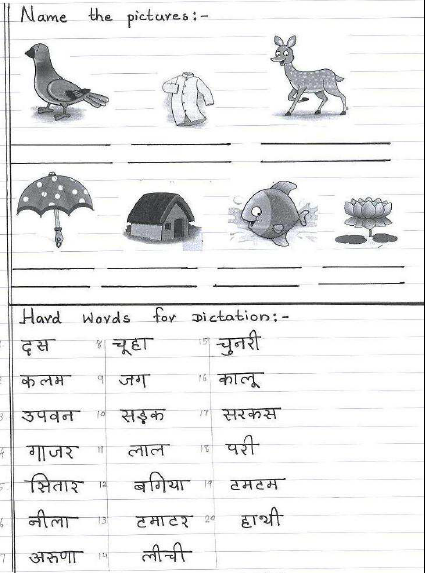 Name the pictures:-
Hard Words for Dictation:-
दस 8 चूहा 15 चुनरी
कलम 9 जग 16 कालू
3 उपवन 10 सड़क 17 सरकस
4 गाजर 11 लाल 18 परी
5 सितार 12 बगिया 19 टमटम
6 नीला 13 टमाटर 20 हाथी
7 अरुणा 14 लीची